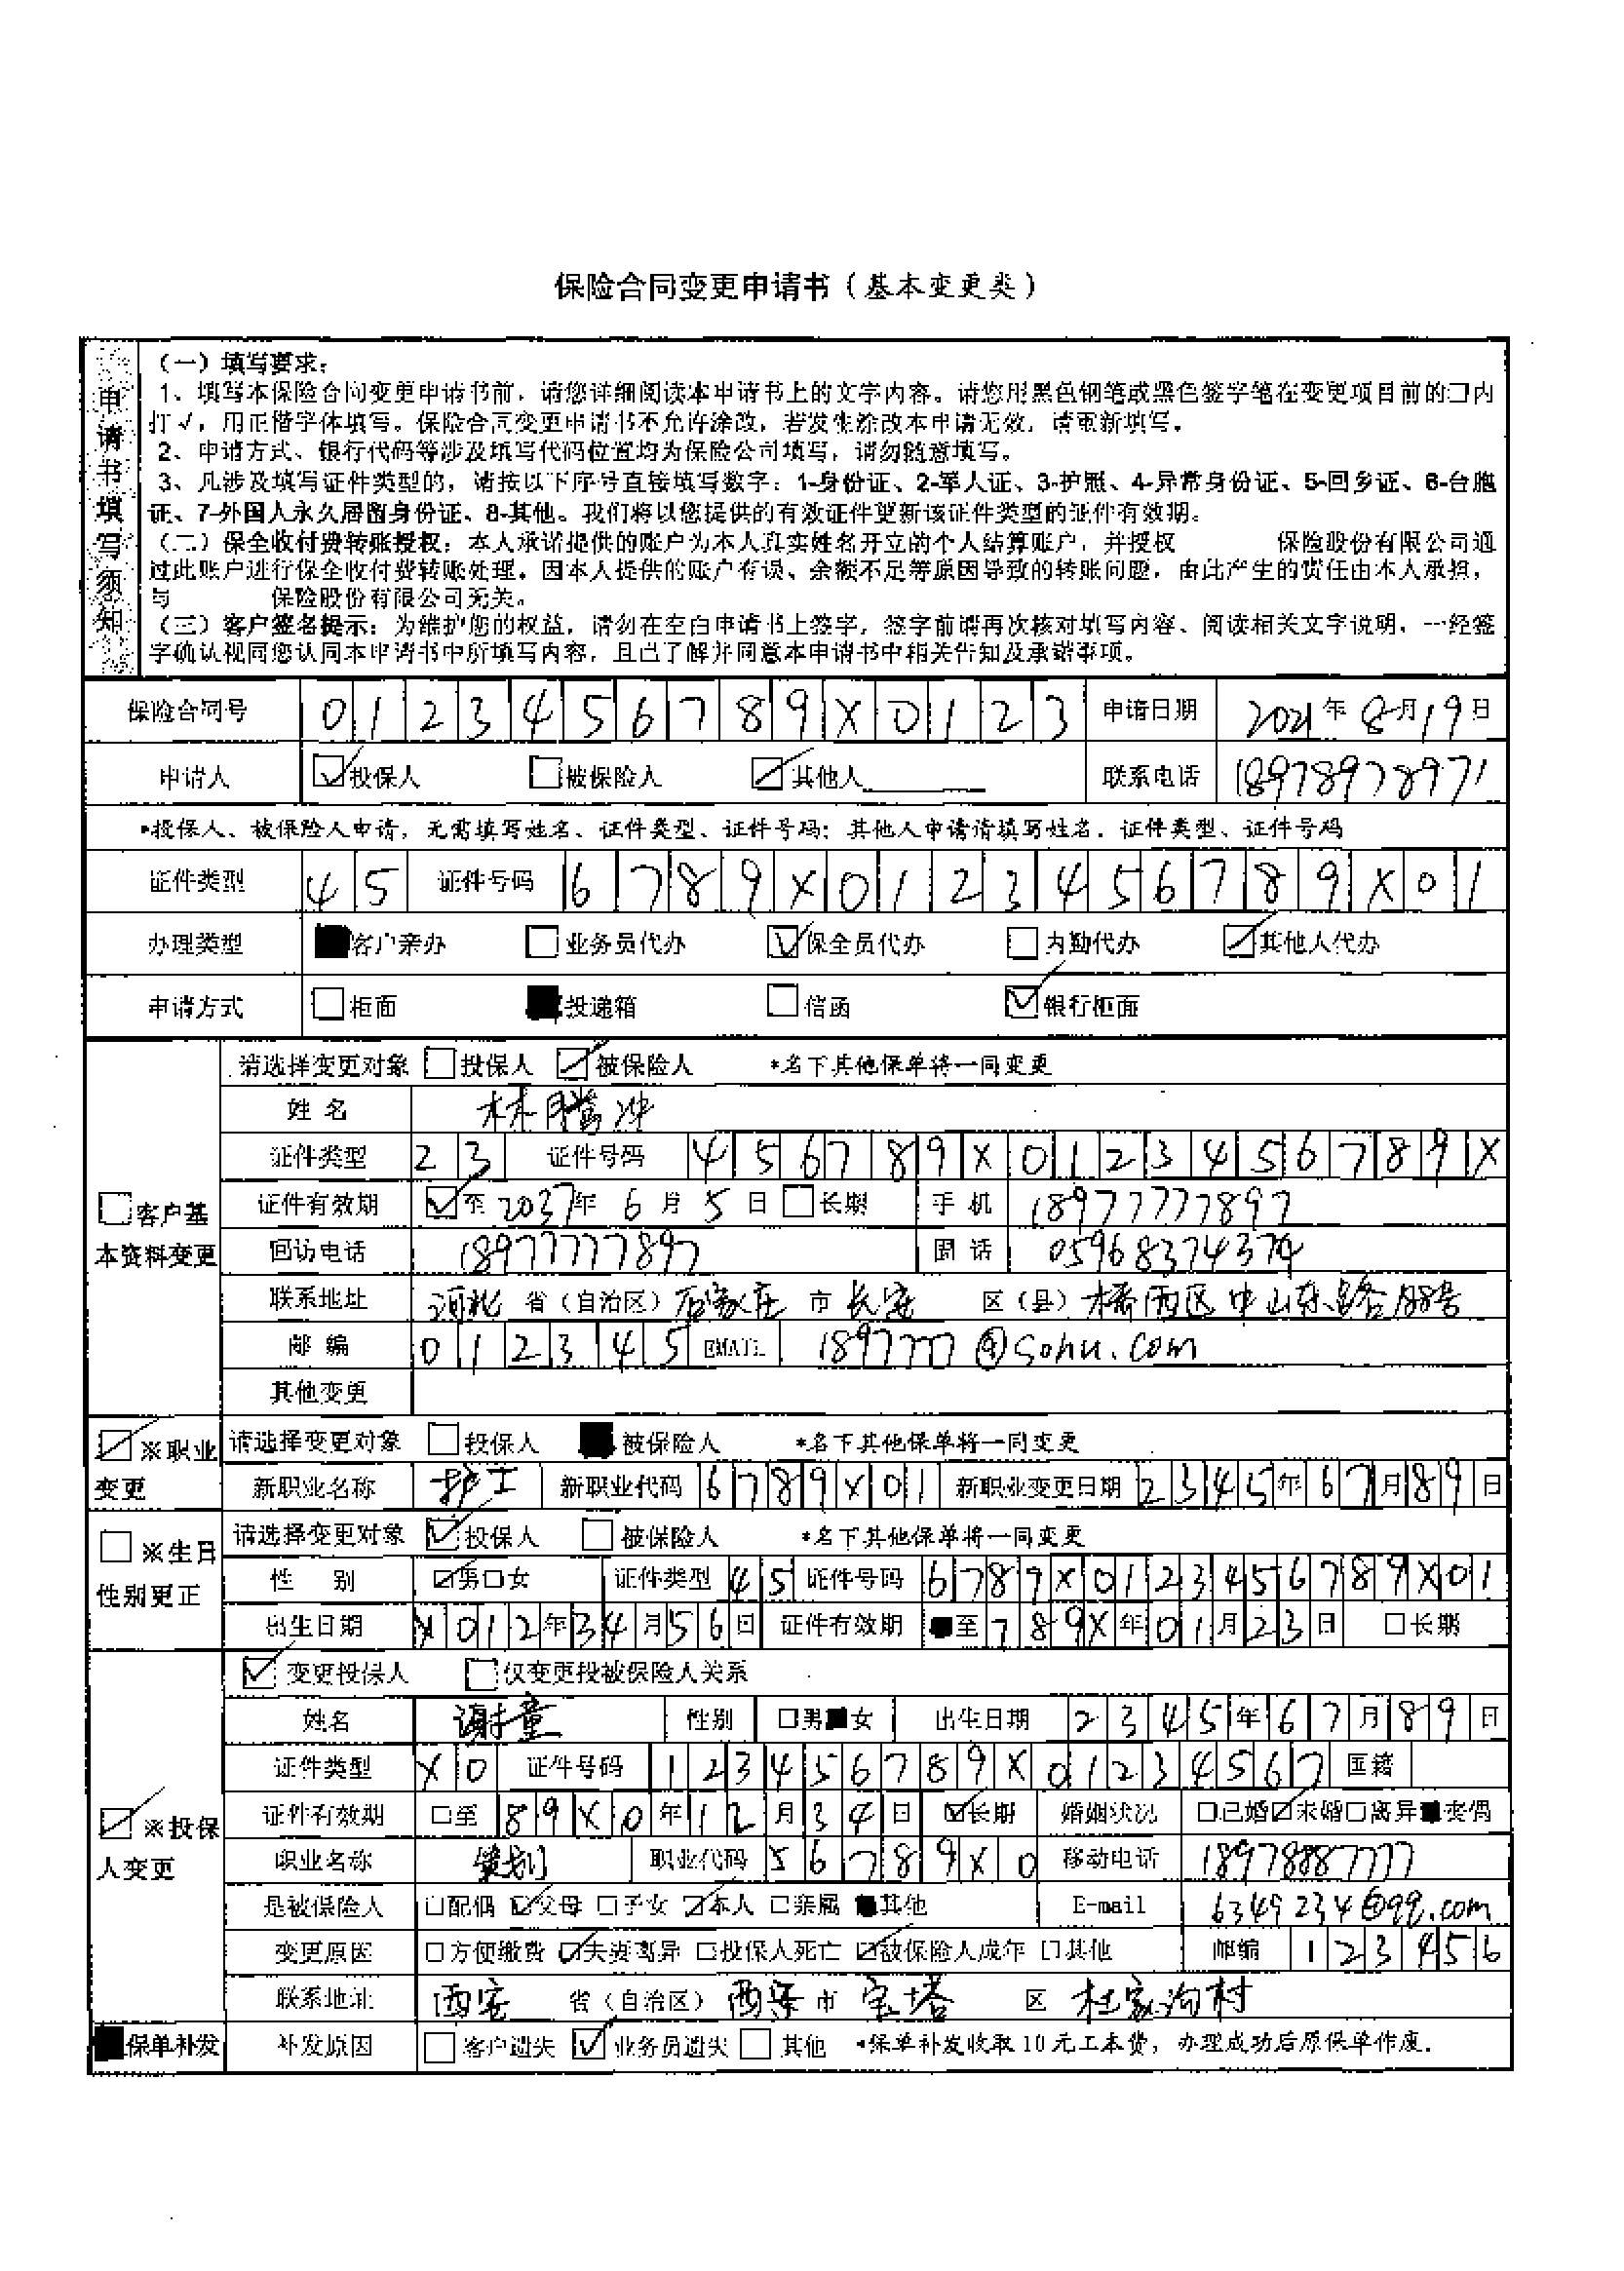 保险合同变更申请书（基本变更类）
申请书填写须知
（一）填写要求：
1、填写本保险合同变更申请书前，请您详细阅读本申请书上的文字内容。请您用黑色钢笔或黑色签字笔在变更项目前的□内
打√，用正楷字体填写。保险合同变更申请书不允许涂改，若发生涂改本申请无效，请重新填写。
2、申请方式、银行代码等涉及填写代码位置均为保险公司填写，请勿随意填写。
3、凡涉及填写证件类型的，请按以下序号直接填写数字：1-身份证、2-军人证、3-护照、4-异常身份证、5-回乡证、6-台胞
证、7-外国人永久居留身份证、8-其他。我们将以您提供的有效证件更新该证件类型的证件有效期。
（二）保全收付费转账授权：本人承诺提供的账户为本人真实姓名开立的个人结算账户，并授权 保险股份有限公司通
过此账户进行保全收付费转账处理。因本人提供的账户有误、余额不足等原因导致的转账问题，由此产生的责任由本人承担，
与 保险股份有限公司无关。
（三）客户签名提示：为维护您的权益，请勿在空白申请书上签字，签字前请再次核对填写内容、阅读相关文字说明，一经签
字确认视同您认同本申请书中所填写内容，且已了解并同意本申请书中相关告知及承诺事项。
保险合同号 0123456789X0123 申请日期 2021年8月19日
申请人 ☑投保人 □被保险人 ☑其他人 联系电话 18978978971
*投保人、被保险人申请，无需填写姓名、证件类型、证件号码；其他人申请请填写姓名、证件类型、证件号码
证件类型 45 证件号码 6789X0123456789X01
办理类型 ■客户亲办 □业务员代办 ☑保全员代办 □内勤代办 ☑其他人代办
申请方式 □柜面 ■投递箱 □信函 ☑银行柜面
□客户基本资料变更
请选择变更对象 □投保人 ☑被保险人 *名下其他保单将一同变更
姓 名 林腾冲
证件类型 23 证件号码 456789X0123456789X
证件有效期 ☑至2037年6月5日 □长期 手 机 18977777897
回访电话 18977777897 固 话 05968374374
联系地址 河北 省（自治区）石家庄 市 长安 区（县）桥西区中山东路188号
邮 编 012345 EMAIL 1897777@sohu.com
其他变更
☑※职业变更
请选择变更对象 □投保人 ■被保险人 *名下其他保单将一同变更
新职业名称 护工 新职业代码 6789X01 新职业变更日期 2345年67月89日
□※生日性别更正
请选择变更对象 ☑投保人 □被保险人 *名下其他保单将一同变更
性 别 ☑男□女 证件类型 45 证件号码 6789X0123456789X01
出生日期 X012年34月56日 证件有效期 ■至789X年01月23日 □长期
☑※投保人变更
☑变更投保人 □仅变更投被保险人关系
姓名 谢童 性别 □男■女 出生日期 2345年67月89日
证件类型 X0 证件号码 123456789X01234567 国籍
证件有效期 □至89X0年12月34日 ☑长期 婚姻状况 □已婚☑未婚□离异■丧偶
职业名称 策划 职业代码 56789X0 移动电话 18978887777
是被保险人 □配偶 ☑父母 □子女 ☑本人 □亲属 ■其他 E-mail 6349234@qq.com
变更原因 □方便缴费 ☑夫妻离异 □投保人死亡 ☑被保险人成年 □其他 邮编 123456
联系地址 西安 省（自治区）西乐 市 宝塔 区 杜家沟村
■保单补发 补发原因 □客户遗失 ☑业务员遗失 □其他 *保单补发收取10元工本费，办理成功后原保单作废.